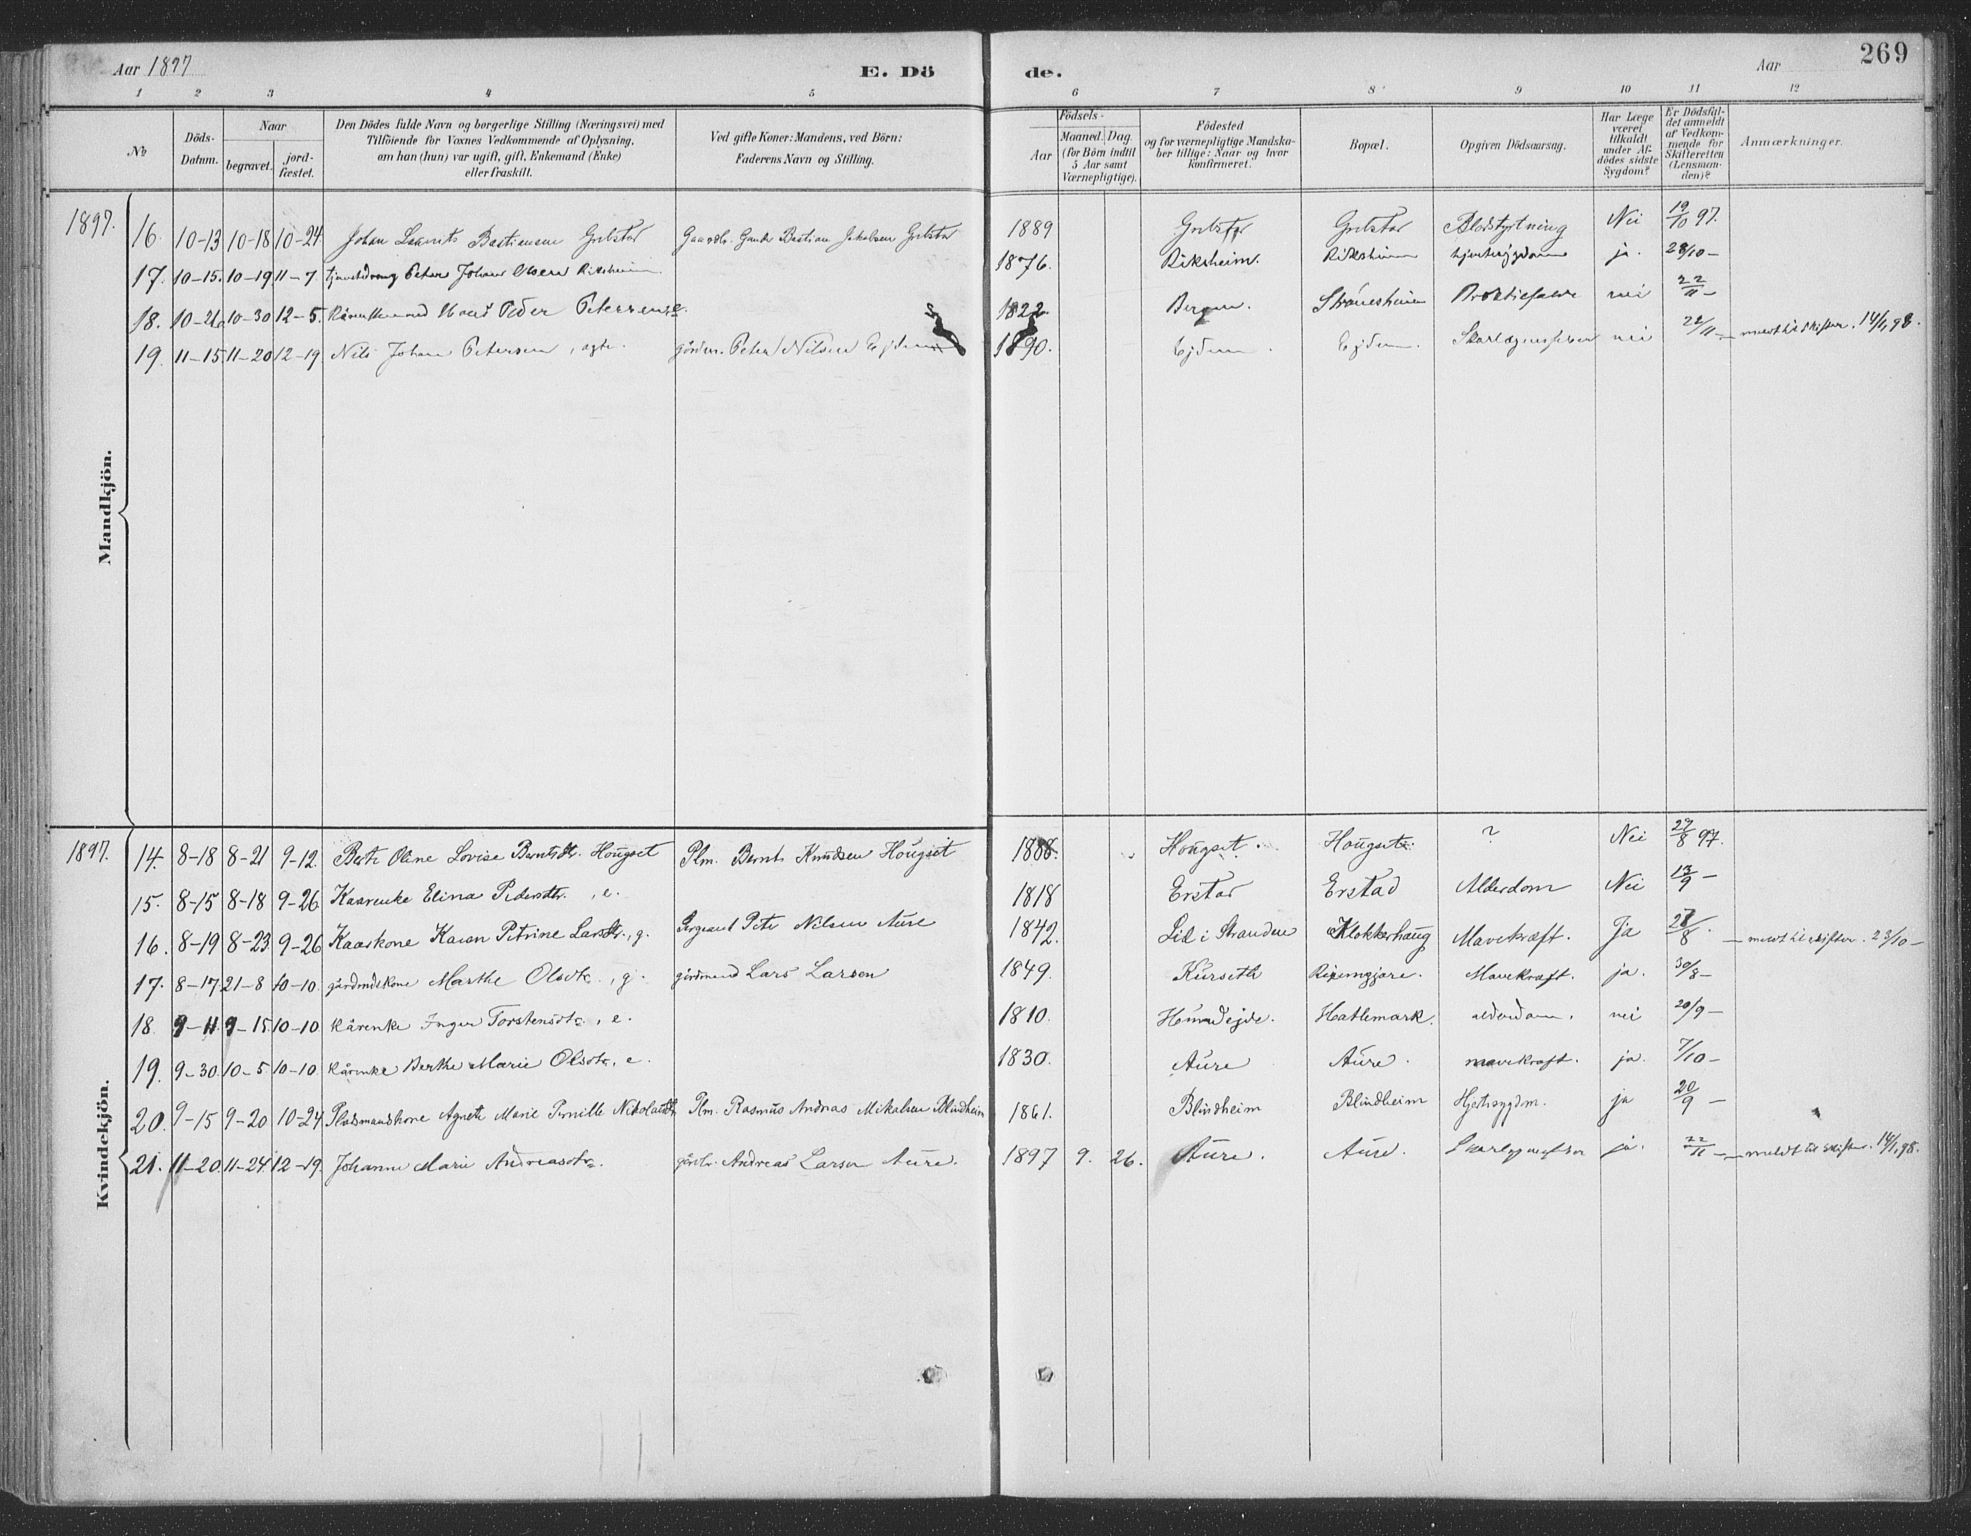 Aar 1897 E. Dö de. Aar 269
1 2 3 4 5 6 7 8 9 10 11 12
No
Döds-Datum.
Naar
begravet.
jord-fæstet.
Den Dödes fulde Navn og borgerlige Stilling (Næringsvei) med
Tilföiende for Voxnes Vedkommende af Oplysning,
om han (hun) var ugift, gift, Enkemand (Enke)
eller fraskilt.
Ved gifte Koner: Mandens, ved Börn:
Faderens Navn og Stilling.
Födsels-
Aar
Maaned. Dag
(for Börn indtil
5 Aar samt
Værnepligtige).
Födested
og for værnepligtige Mandska-
ber tillige: Naar og hvor
konfirmeret.
Bopæl.
Opgiven Dödsaarsag.
Har Læge
været
tilkaldt
under Af-
dödes sidste
Sygdom?
Er Dödsfal-
det anmeldt
af Vedkom-
mende for
Skifteretten
(Lensman-
den)?
Anmærkninger.
Mandkjön.
1897. 16. 10-13 10-18 10-24 Johan Bastiansen Bastian Jakobsen 1889 Blodstyrtning Nei 19/10 97.
17. 10-15. 10-19 11-7 Peter Johan Olsen Riksheim 1876. Riksheim. Riksheim ja. 28/10 -
18. 10-26 10-30 12-5. Peder Petersen 1822 Bergen. nei 22/11 -
19. 11-15 11-20 12-19 Nils Johan Petersen, ægte. Peter Nilsen 1890. nei 22/11 - meldt til skifter. 14/1, 98.
Kvindekjön.
1897. 14. 8-18 8-21 9-12. Oline Lovise Berntsdtr. Hougset Plm. Bernt Knudsen Hougset 1888. Hougset. Hougset. ? Nei 27/8 97.
15. 8-15 8-18 9-26 Kaarenke Elina Pedersdtr., e. 1818 Erstad Erstad Alderdom Nei 13/9 -
16. 8-19 8-23 9-26 Kaarkone Karen Petrine Larsdtr., g. Sergeant Peter Nilsen Aure 1842. Lid i Stranden Klokkerhaug Mavekræft. Ja 28/8 - meldt til skifter. 23/10 -
17. 8-17 21-8 10-10. gårdmdskone Marthe Olsdtr., g. gårdmand Lars Larsen 1849. Kurseth Mavekræft. ja. 30/8 -
18. 9-11 9-15 10-10 kårenke Inger Torstensdtr., e. 1810. Hatlemark. alderdom. nei 20/9 -
19. 9-30 10-5 10-10 kårenke Berthe Marie Olsdtr., e. 1830. Aure Aure. mavekræft. ja. 7/10 -
20. 9-15 9-20 10-24 Pladsmandskone Agnete Marie Pernille Nikolaidtr. Plm. Rasmus Andreas Mikalsen Blindheim 1861. Blindheim Blindheim Hjertesygdm. ja 20/9 -
21. 11-20. 11-24 12-19. Johanne Marie Andreasdtr. Andreas Larsen Aure. 1897 9. 26. Aure. Aure. ja. 22/11 - meldt til skifter. 14/1, 98.